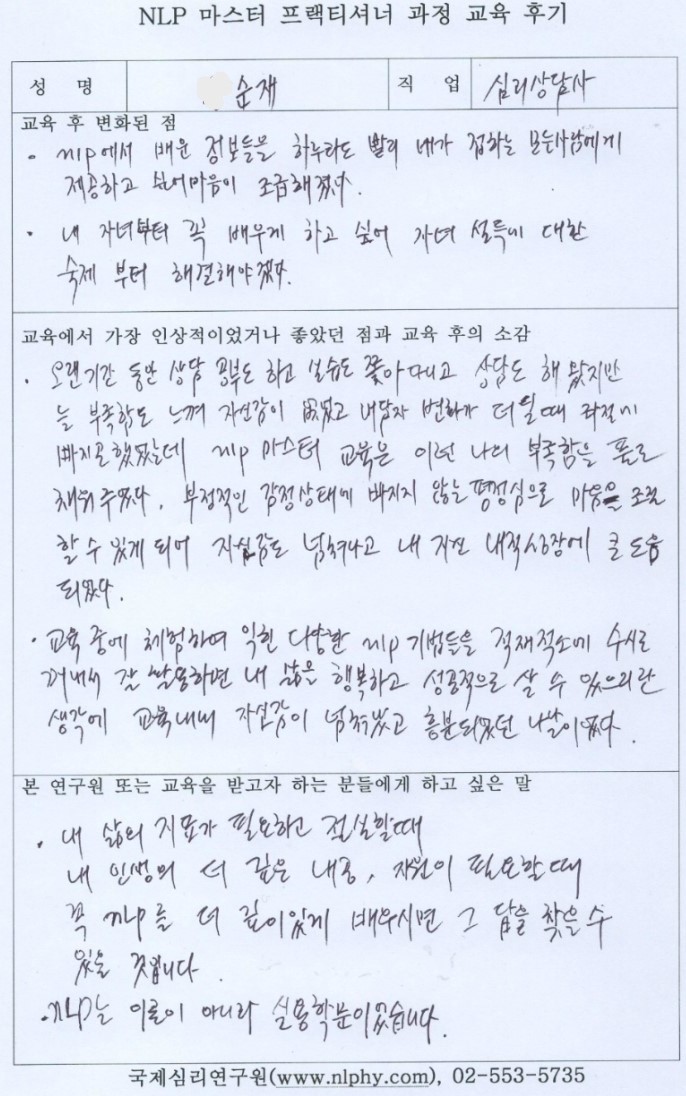 NLP 마스터 프랙티셔너 과정 교육 후기
성 명 순재 직 업 심리상담사
교육 후 변화된 점
• nlp에서 배운 정보들을 하루라도 빨리 내가 접하는 모든사람에게
제공하고 싶어마음이 조급해졌다.
• 내 자녀부터 꼭 배우게 하고 싶어 자녀 설득에 대한
숙제 부터 해결해야겠다.
교육에서 가장 인상적이었거나 좋았던 점과 교육 후의 소감
• 오랜기간 동안 상담 공부도 하고 실습도 쫓아다니고 상담도 해 봤지만
늘 부족함도 느껴 자신감이 없었고 내담자 변화가 더딜때 좌절에
빠지곤했었는데 nlp 마스터 교육은 이런 나의 부족함을 풀로
채워주었다. 부정적인 감정상태에 빠지지 않는 평정심으로 마음을 조절
할 수 있게 되어 자신감도 넘쳐나고 내 자신 내적성장에 큰 도움
되었다.
• 교육 중에 체험하여 익힌 다양한 nlp 기법들을 적재적소에 수시로
꺼내서 잘 활용하면 내 삶은 행복하고 성공적으로 살 수 있으리란
생각에 교육내내 자신감이 넘쳐났고 흥분되었던 나날이었다.
본 연구원 또는 교육을 받고자 하는 분들에게 하고 싶은 말
• 내 삶의 지표가 필요하고 절실할때
내 인생의 더 깊은 내공, 자원이 필요할때
꼭 NLP를 더 깊이있게 배우시면 그 답을 찾을 수
있을 것입니다.
• NLP는 이론이 아니라 실용학문이었습니다.
국제심리연구원(www.nlphy.com), 02-553-5735